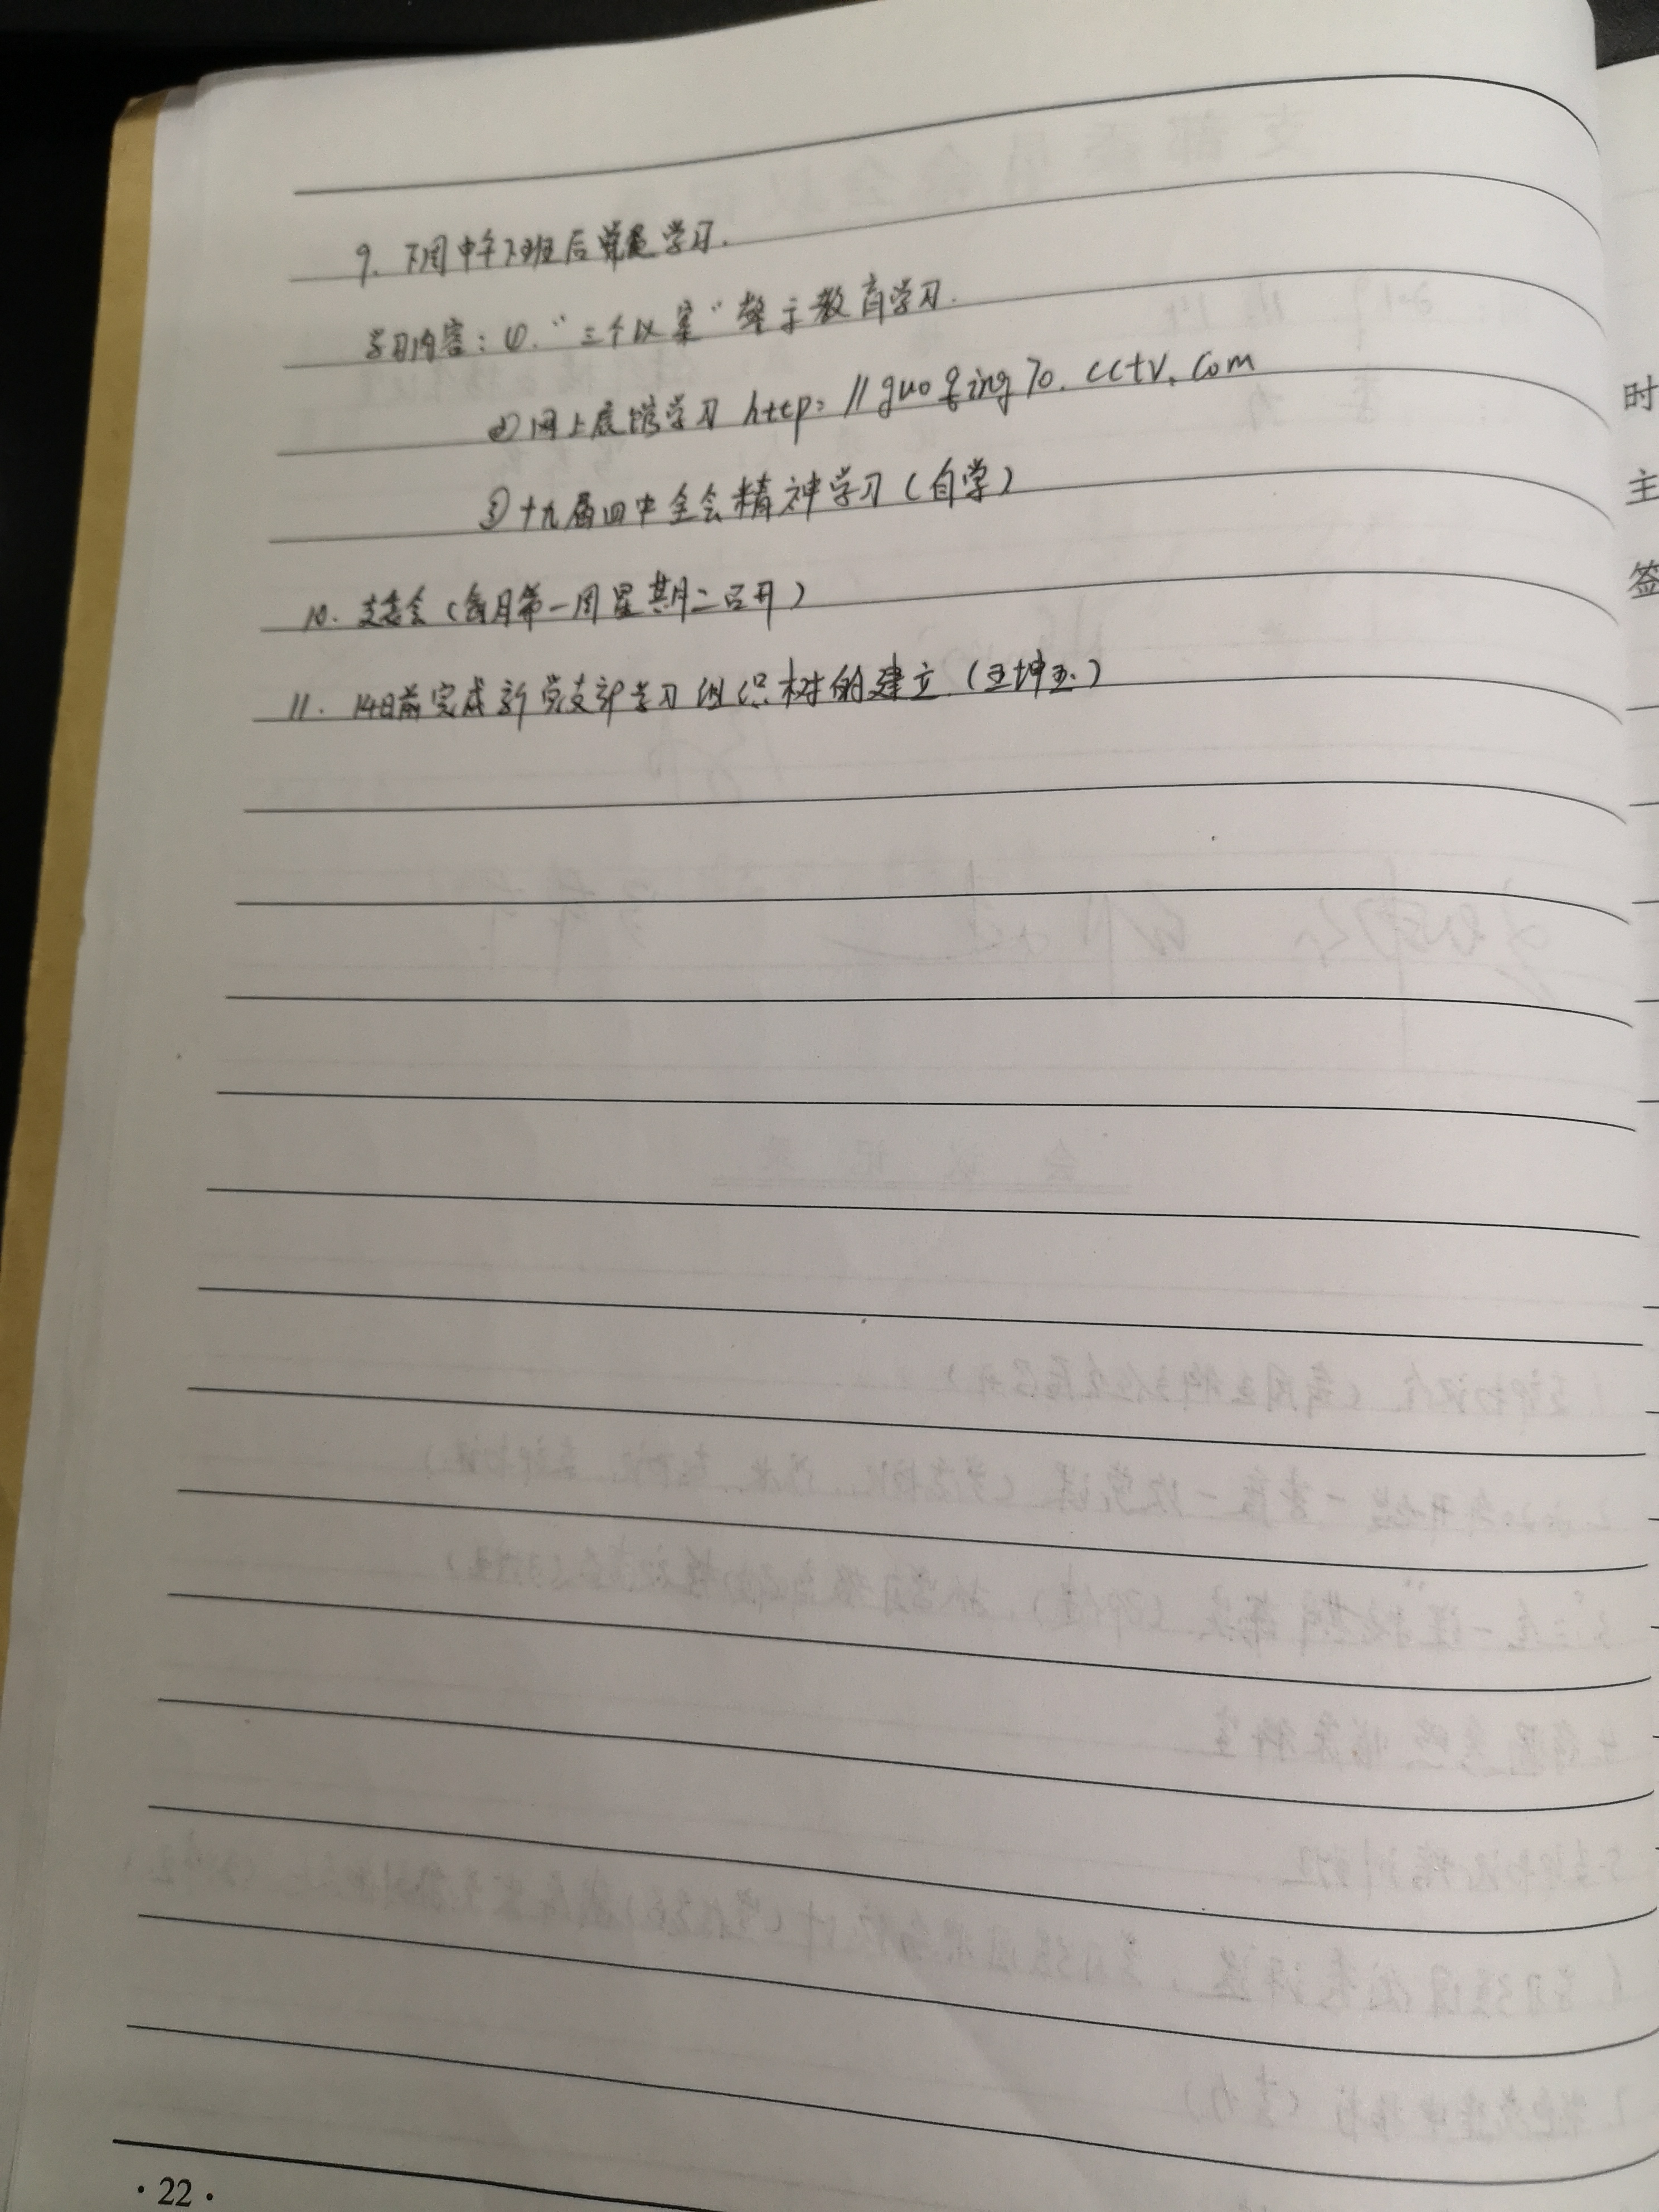 9. 下周中午下班后党员学习.
学习内容：①. "三个以案"警示教育学习.
②网上展馆学习 http：//guoqing70.cctv.com
③十九届四中全会精神学习（自学）
10. 支委会（每月第一周星期二召开）
11. 14日前完成新党支部学习组织树的建立.（王坤玉.）
·22·
时
主
签